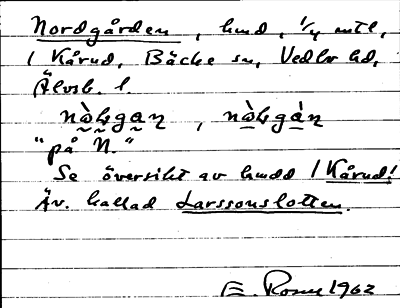 Nordgården, hmd, 1/4 mtl,
i Kårud, Bäcke sn, Vedbo hd,
Älvsb. l.
"på N."
Se översikt av hmdd i Kårud!
Äv. kallad Larssonslotten.
1962